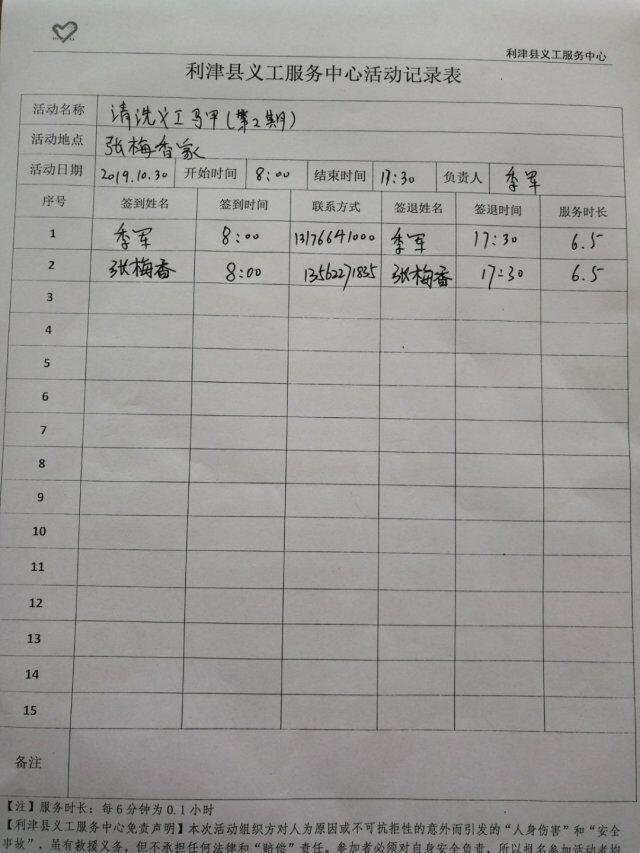 利津县义工服务中心
利津县义工服务中心活动记录表
活动名称 清洗义工马甲(第2期)
活动地点 张梅香家
活动日期 2019.10.30 开始时间 8:00 结束时间 17:30 负责人 季军
序号 签到姓名 签到时间 联系方式 签退姓名 签退时间 服务时长
1 季军 8:00 13176641000 季军 17:30 6.5
2 张梅香 8:00 13562271835 张梅香 17:30 6.5
3
4
5
6
7
8
9
10
11
12
13
14
15
备注
【注】服务时长：每6分钟为0.1小时
【利津县义工服务中心免责声明】本次活动组织方对人为原因或不可抗拒性的意外而引发的“人身伤害”和“安全
事故”，虽有救援义务，但不承担任何法律和“赔偿”责任。参加者必须对自身安全负责，所以报名参加活动者均